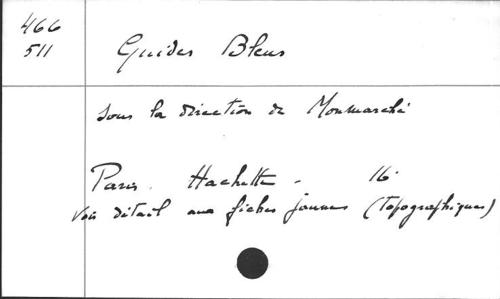 466
511
Guides Bleus
sous la direction de Monmarché
Paris. Hachette - 16°
Voir détail aux fiches jaunes (topographiques)